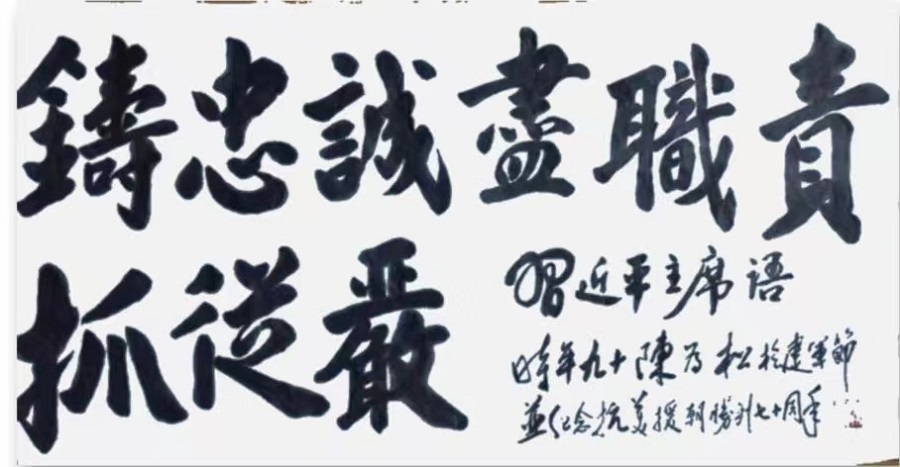 鑄忠誠盡職責
抓從嚴
習近平主席語
時年九十陳乃松於建軍節
並纪念抗美援朝勝利七十周年